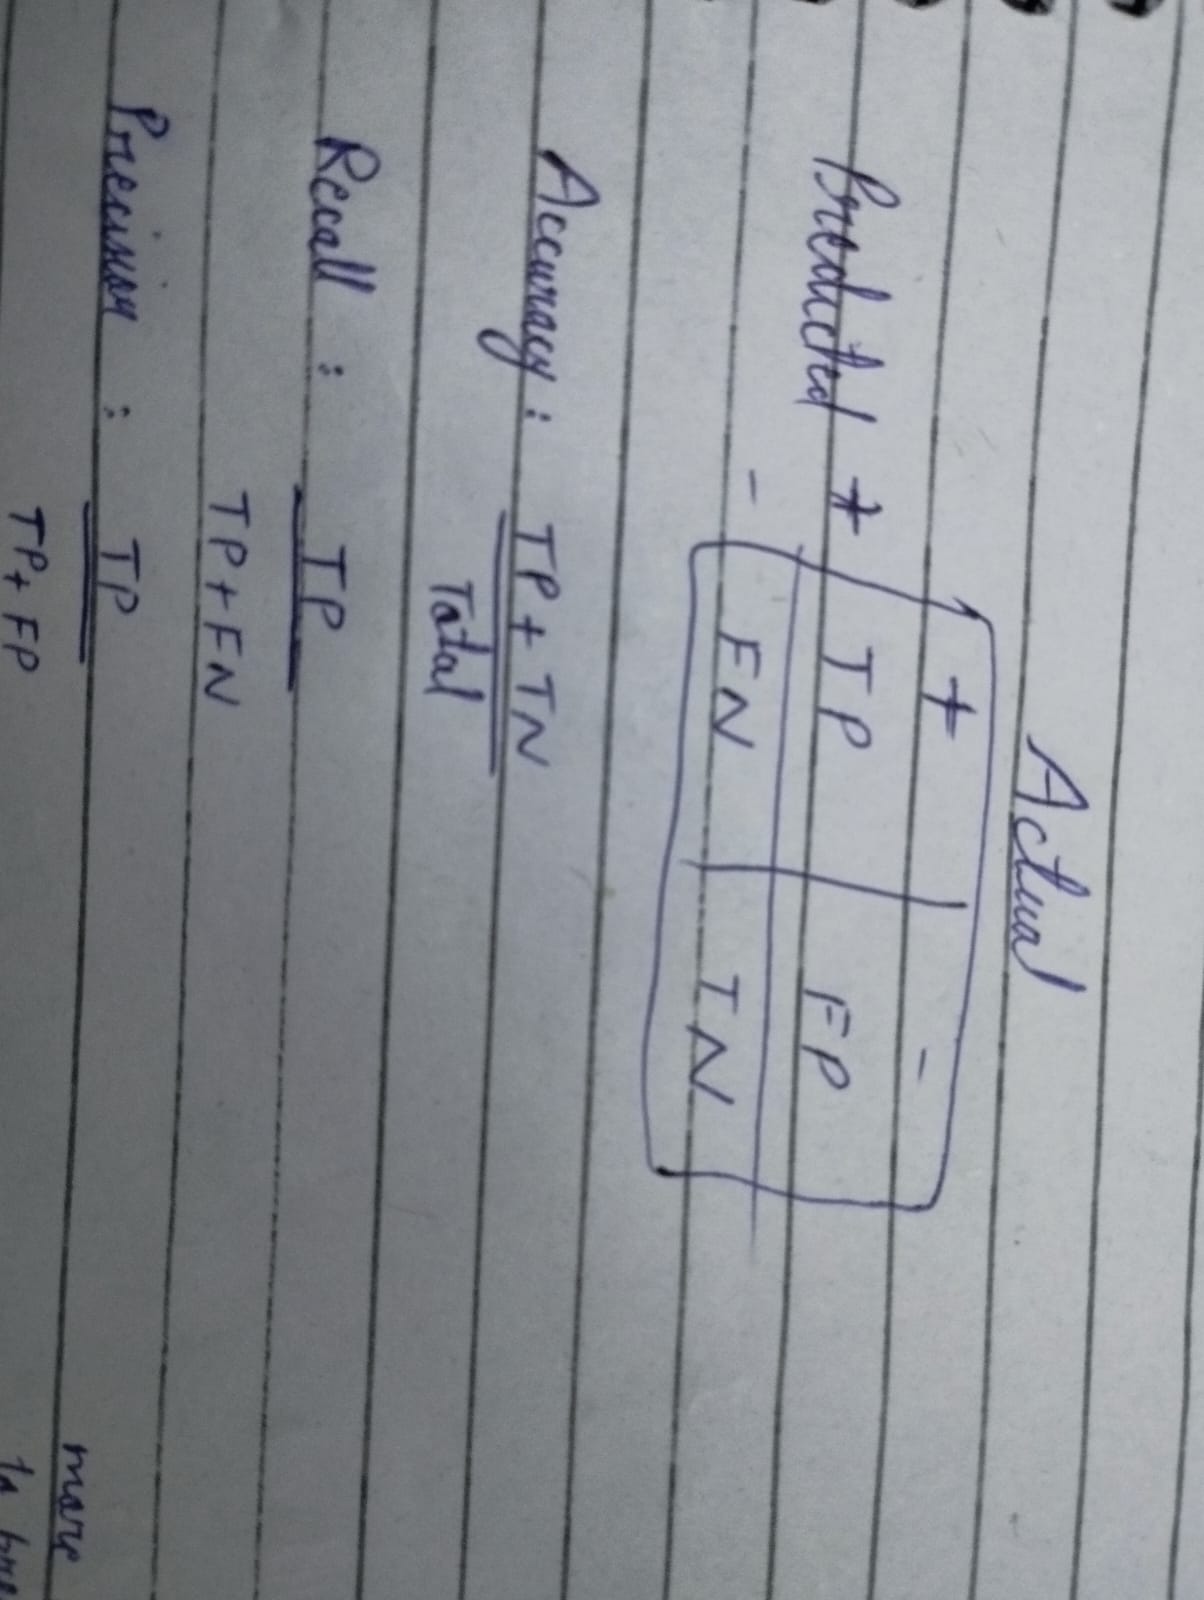 Actual
+ -
Predicted + TP FP
- FN TN
Accuracy : TP + TN
Total
Recall : TP
TP + FN
Precision : TP
TP + FP
more